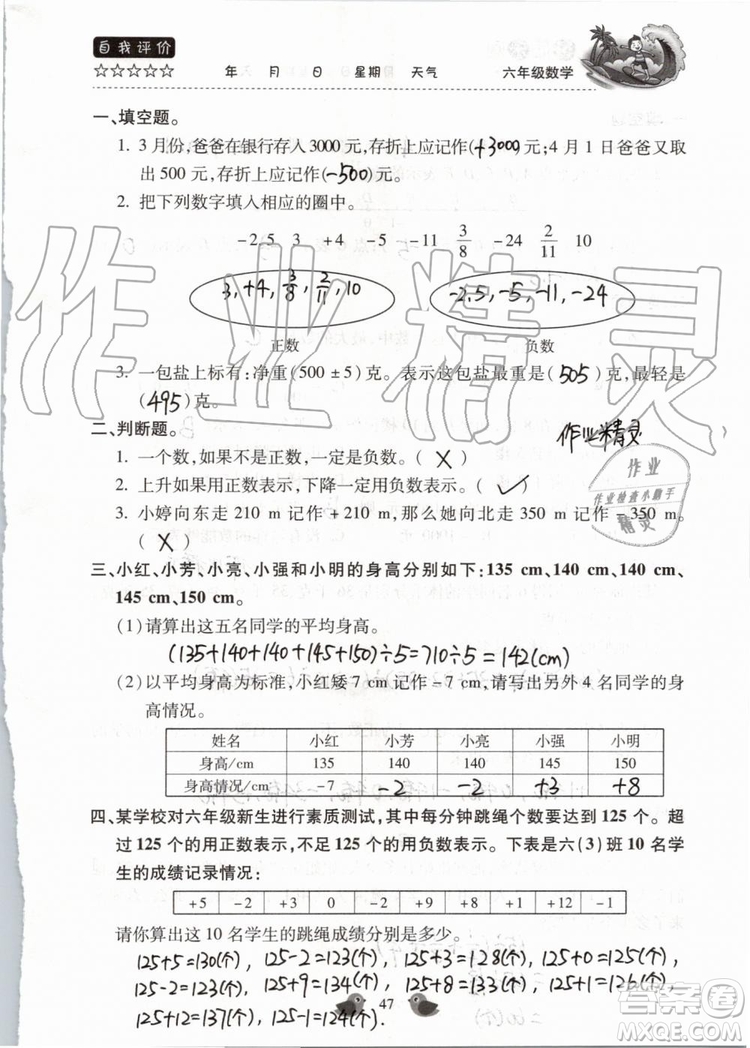 自我评价
☆☆☆☆☆ 年 月 日 星期 天气 六年级数学
一、填空题。
1. 3月份,爸爸在银行存入3000元,存折上应记作(+3000)元;4月1日爸爸又取
出500元,存折上应记作(-500)元。
2. 把下列数字填入相应的圈中。
-2.5 3 +4 -5 -11 3/8 -24 2/11 10
3, +4, 3/8, 2/11, 10 -2.5, -5, -11, -24
正数 负数
3. 一包盐上标有:净重(500±5)克。表示这包盐最重是(505)克,最轻是
(495)克。
二、判断题。
作业精灵
1. 一个数,如果不是正数,一定是负数。(X)
2. 上升如果用正数表示,下降一定用负数表示。(✓)
3. 小婷向东走210 m记作+210 m,那么她向北走350 m记作-350 m。
(X)
作业
作业检查小助手
精灵
三、小红、小芳、小亮、小强和小明的身高分别如下:135 cm、140 cm、140 cm、
145 cm、150 cm。
(1)请算出这五名同学的平均身高。
(135+140+140+145+150)÷5=710÷5=142(cm)
(2)以平均身高为标准,小红矮7 cm记作-7 cm,请写出另外4名同学的身
高情况。
姓名 小红 小芳 小亮 小强 小明
身高/cm 135 140 140 145 150
身高情况/cm -7 -2 -2 +3 +8
四、某学校对六年级新生进行素质测试,其中每分钟跳绳个数要达到125个。超
过125个的用正数表示,不足125个的用负数表示。下表是六(3)班10名学
生的成绩记录情况:
+5 -2 +3 0 -2 +9 +8 +1 +12 -1
请你算出这10名学生的跳绳成绩分别是多少。
125+5=130(个) 125-2=123(个) 125+3=128(个) 125+0=125(个)
125-2=123(个) 125+9=134(个) 125+8=133(个) 125+1=126(个)
125+12=137(个), 125-1=124(个).
47
作业精灵
答案圈
MXQE.COM